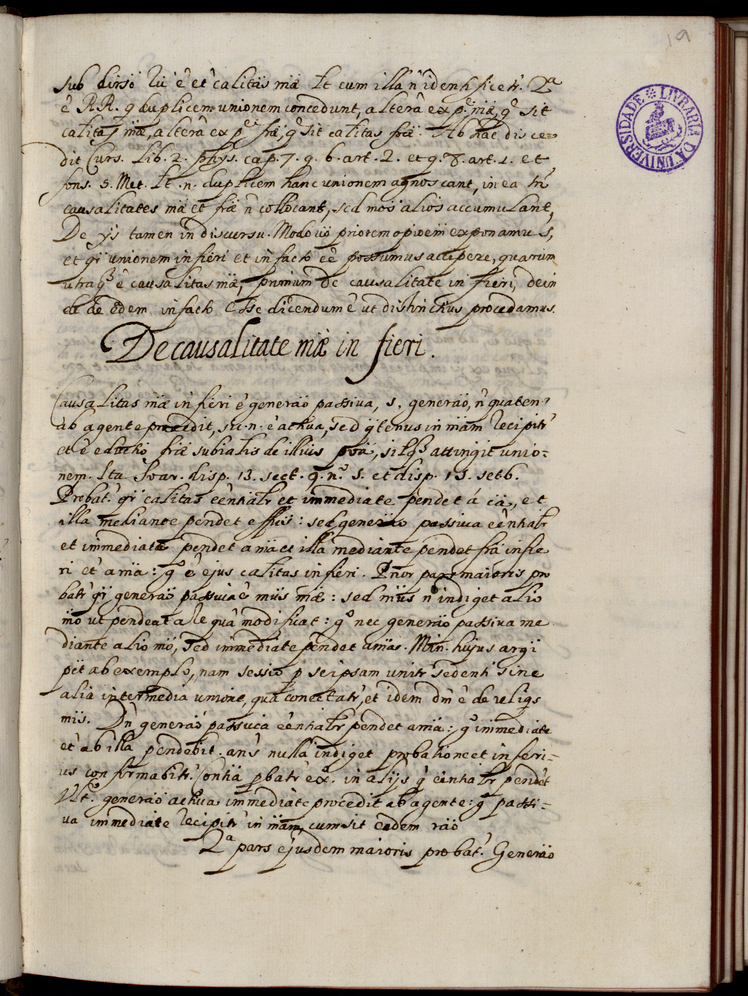 19
LIVRARIA DA UNIVERSIDADE
sub dirso è et cãlitas mæ Et cum illa ñ identificetr. 2ª
é RR. q duplicem unionem concedunt, alterã ex p. mæ, qª sit
calitas mæ, alterã ex pe fræ, qª sit calitas fræ. Ab hac disce-
dit Curs. Lib. 2. phys. cap. 7. q. 6. art. 2. et q. 8. art. 1. et
fons. 5. Met. Et .n. duplicem hanc unionem agnoscant, in ea tñ
causalitates mæ et fræ ñ collocant, sed mos alios accumulant,
De ijs tamen in discursu. Modo uó priorem opioem exponamus,
et qi unionem in fieri et in facto eê possumus accipere, quarum
utraq; ê causalitas mæ, primum de causalitate in fieri, dein
de de eadem in facto Esse dicendum ê ut distinctius procedamus.
De causalitate mæ in fieri.
Causalitas mæ in fieri ê generaõ passiua, s. generaõ, ñ quaten.
ab agente procedit, sic .n. ê actiua, sed qtenus in mãm recipitr
et ê eductio fræ subialis de illius poã, simulqª attingit unio-
nem. Ita Soar. disp. 13. sect. 9. nº. 5. et disp. 15. sect. 6.
Probatr. qi calitas eênhalr et immediate pendet á cã, et
illa mediante pendet effus: sed generaõ passiua eênhalr
et immediate pendet a mã et illã mediante pendet frã in fie
ri et a mã: gº ê ejus calitas in fieri. Prior pars maioris pro
batr qi generaõ passiua ê mus mæ: sed mus ñ indiget alio
mõ ut pendeat a re quã modificat: gº nec generaõ passiua me
diante alio mõ, sed immediate pendet a mã. Min. hujus argi
pêt ab exemplo, nam sessio p seipsam unitr sedenti sine
alia intermedia unione, qua conectatr, et idem dm ê de reliqs
mis. Dñ generaõ passiua eênhalr pendet a mã: gº immediate
et ab illa pendebit. ans nulla indiget probatione et inferi-
us confirmabitr. Conña pbatr ex. in alijs q eênhalr pendet
Ult. generaõ actiua immediate procedit ab agente: gº passi-
ua immediate recipitr in mãm, cum sit eadem raõ
2ª pars ejusdem maioris probatr. Generaõ